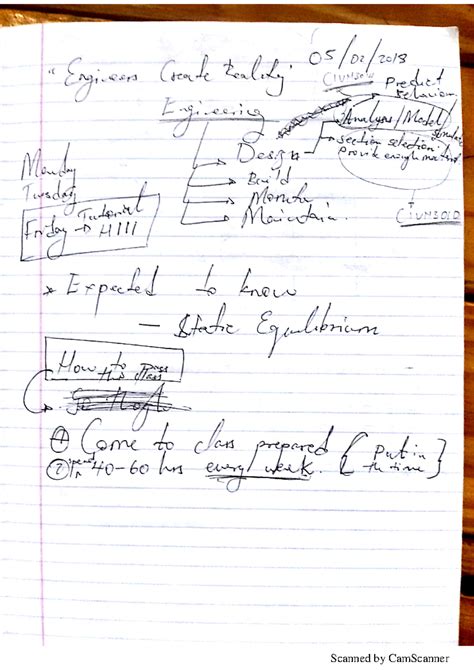 05/02/2018
"Engineers Create Reality"
CIVN3010
Predict
behaviour
Engineering
Analysis/Model
Design
section selection
Provide enough material
Build
Monitor
Maintain
Monday
Tuesday
Tutorial
Friday → H111
* Expected to know
— Static Equilibrium
How to pass
this class
① Come to class prepared
② 40-60 hrs every week. { Put in the time }
Scanned by CamScanner